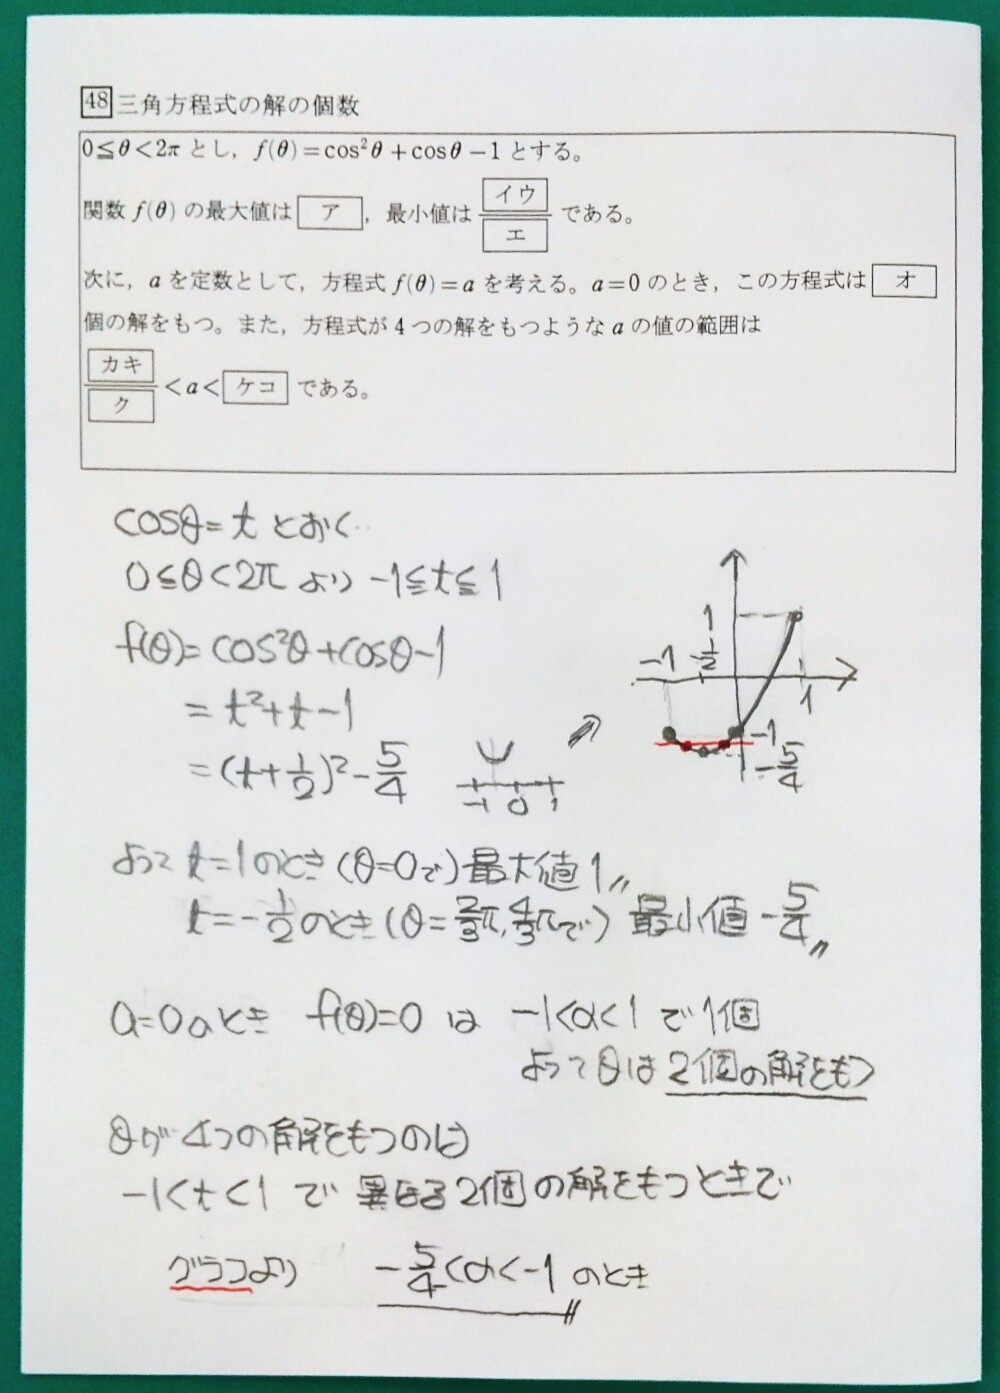 48 三角方程式の解の個数
0≦θ<2π とし，f(θ)=cos²θ+cosθ−1 とする。
関数 f(θ) の最大値は ア ，最小値は イウ/エ である。
次に，a を定数として，方程式 f(θ)=a を考える。a=0 のとき，この方程式は オ
個の解をもつ。また，方程式が 4 つの解をもつような a の値の範囲は
カキ/ク <a< ケコ である。
cosθ=t とおく
0≦θ<2π より -1≦t≦1
f(θ)=cos²θ+cosθ-1
=t²+t-1
=(t+1/2)²-5/4
-1 0 1
1
-1 -1/2
1
-1
-5/4
よって t=1のとき (θ=0で) 最大値 1〃
t=-1/2のとき (θ=2/3π, 4/3πで) 最小値 -5/4〃
a=0のとき f(θ)=0 は -1<a<1 で 1個
よって θは 2個の解をもつ
θが 4つの解をもつのは
-1<t<1 で 異なる2個の解をもつときで
グラフより -5/4<a<-1 のとき